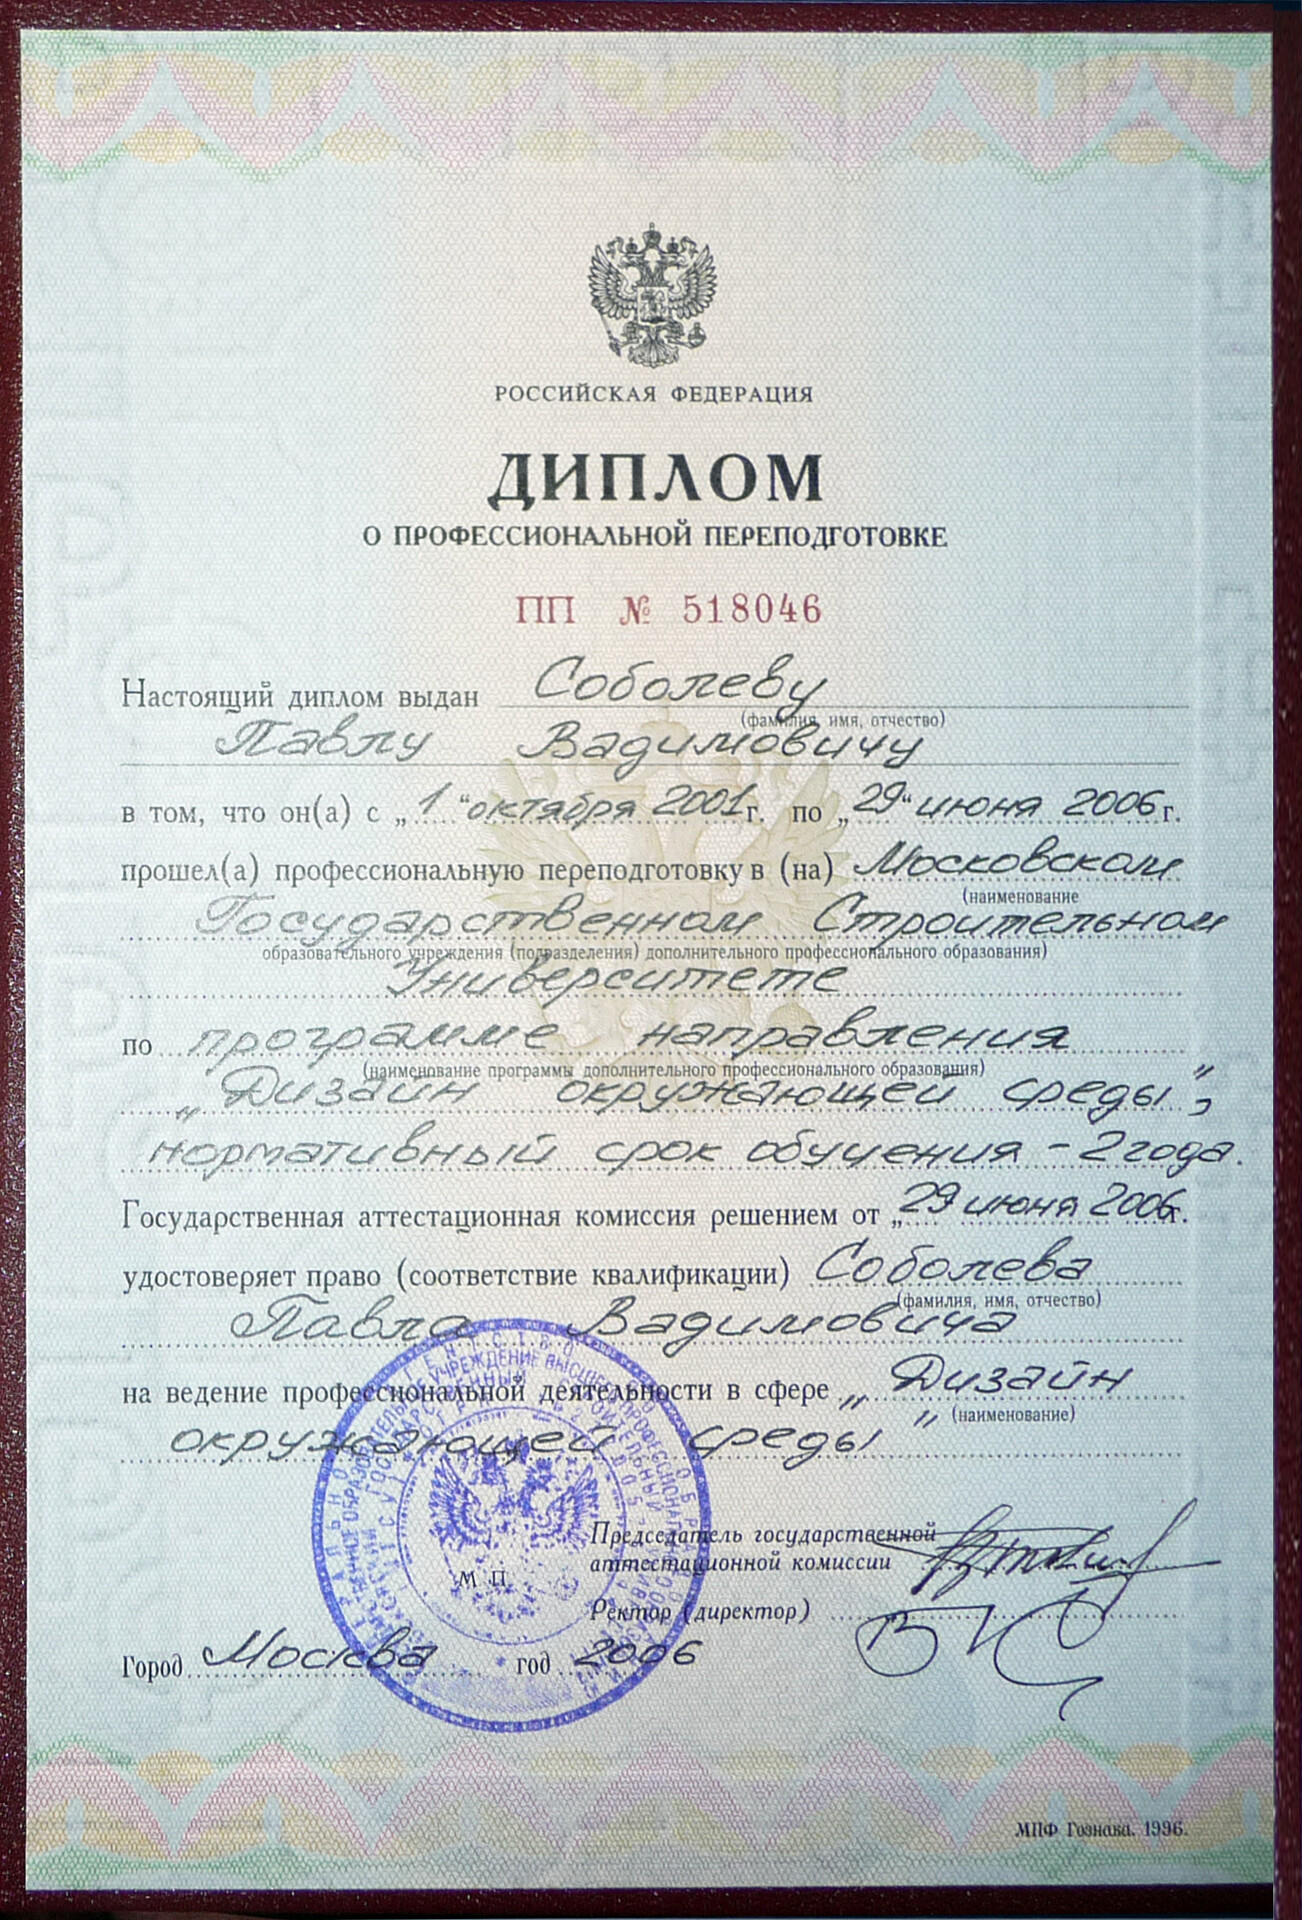 РОССИЙСКАЯ ФЕДЕРАЦИЯ
ДИПЛОМ
О ПРОФЕССИОНАЛЬНОЙ ПЕРЕПОДГОТОВКЕ
ПП № 518046
Настоящий диплом выдан Соболеву
(фамилия, имя, отчество)
Павлу Вадимовичу
в том, что он(а) с „1“ октября 2001 г. по „29“ июня 2006 г.
прошел(а) профессиональную переподготовку в (на) Московском
(наименование
Государственном Строительном
образовательного учреждения (подразделения) дополнительного профессионального образования)
Университете
по программе направления
(наименование программы дополнительного профессионального образования)
„Дизайн окружающей среды“,
нормативный срок обучения – 2 года.
Государственная аттестационная комиссия решением от „29 июня 2006г.
удостоверяет право (соответствие квалификации) Соболева
(фамилия, имя, отчество)
Павла Вадимовича
на ведение профессиональной деятельности в сфере „Дизайн
(наименование)
окружающей среды“
Председатель государственной
аттестационной комиссии
М П
Ректор (директор)
Город Москва год 2006
МПФ Гознака. 1996.